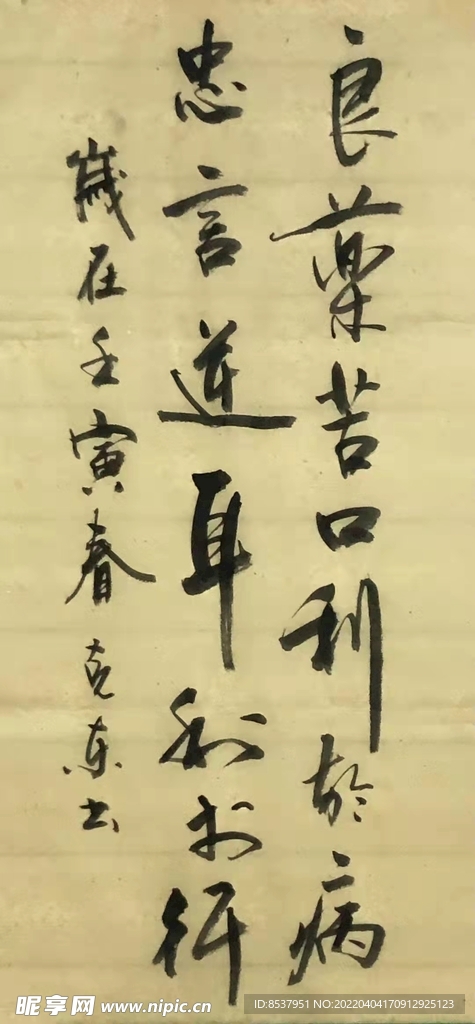 良藥苦口利於病
忠言逆耳利於行
歲在壬寅春克東書
昵享网 www.nipic.cn
ID:8537951 NO:20220404170912925123